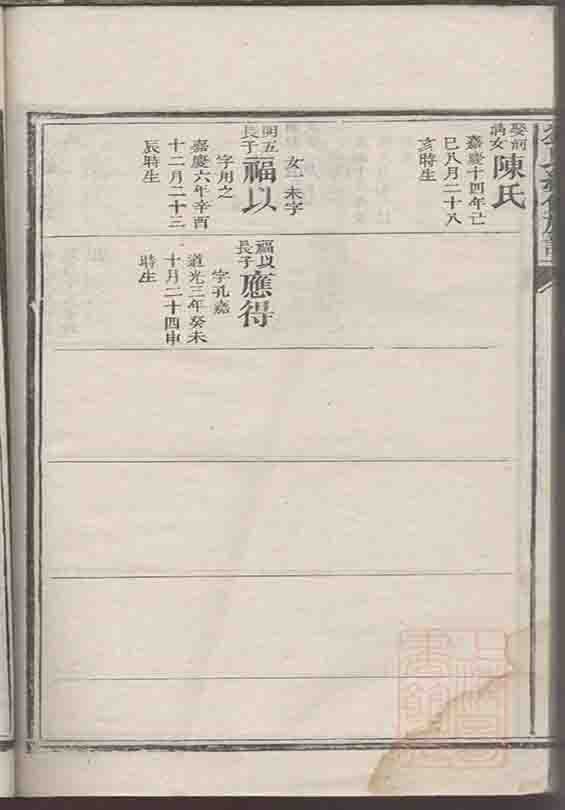 娶前
滿女
陳氏
嘉慶十四年己
巳八月二十八
亥時生
女一未字
開五
長子
福以
字用之
嘉慶六年辛酉
十二月二十三
辰時生
福以
長子
應得
字孔嘉
道光三年癸未
十月二十四申
時生